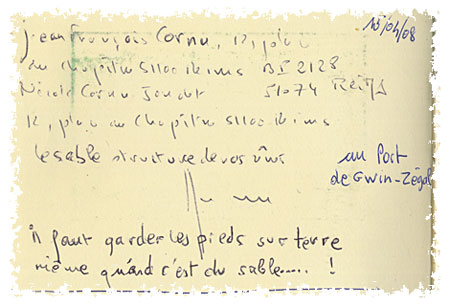 15/04/08
Jean François Cornu, 12, place
du Chapitre 51100 Reims BP 2128
Nicole Cornu 51074 Reims
12, place du Chapitre 51100 Reims
le sable structure de vos vins
au Port
de Gwin-Zégal
il faut garder les pieds sur terre
même quand c'est du sable..... !